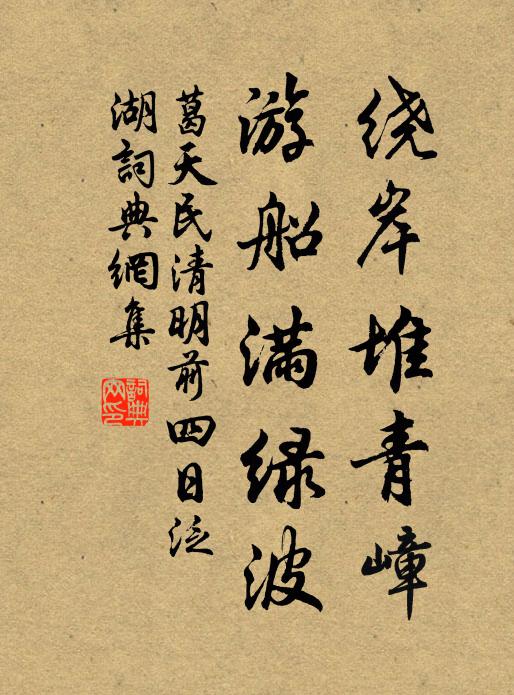 绕岸堆青嶂
游船满绿波
葛天民清明前四日泛
湖詞典網集
詞典網印